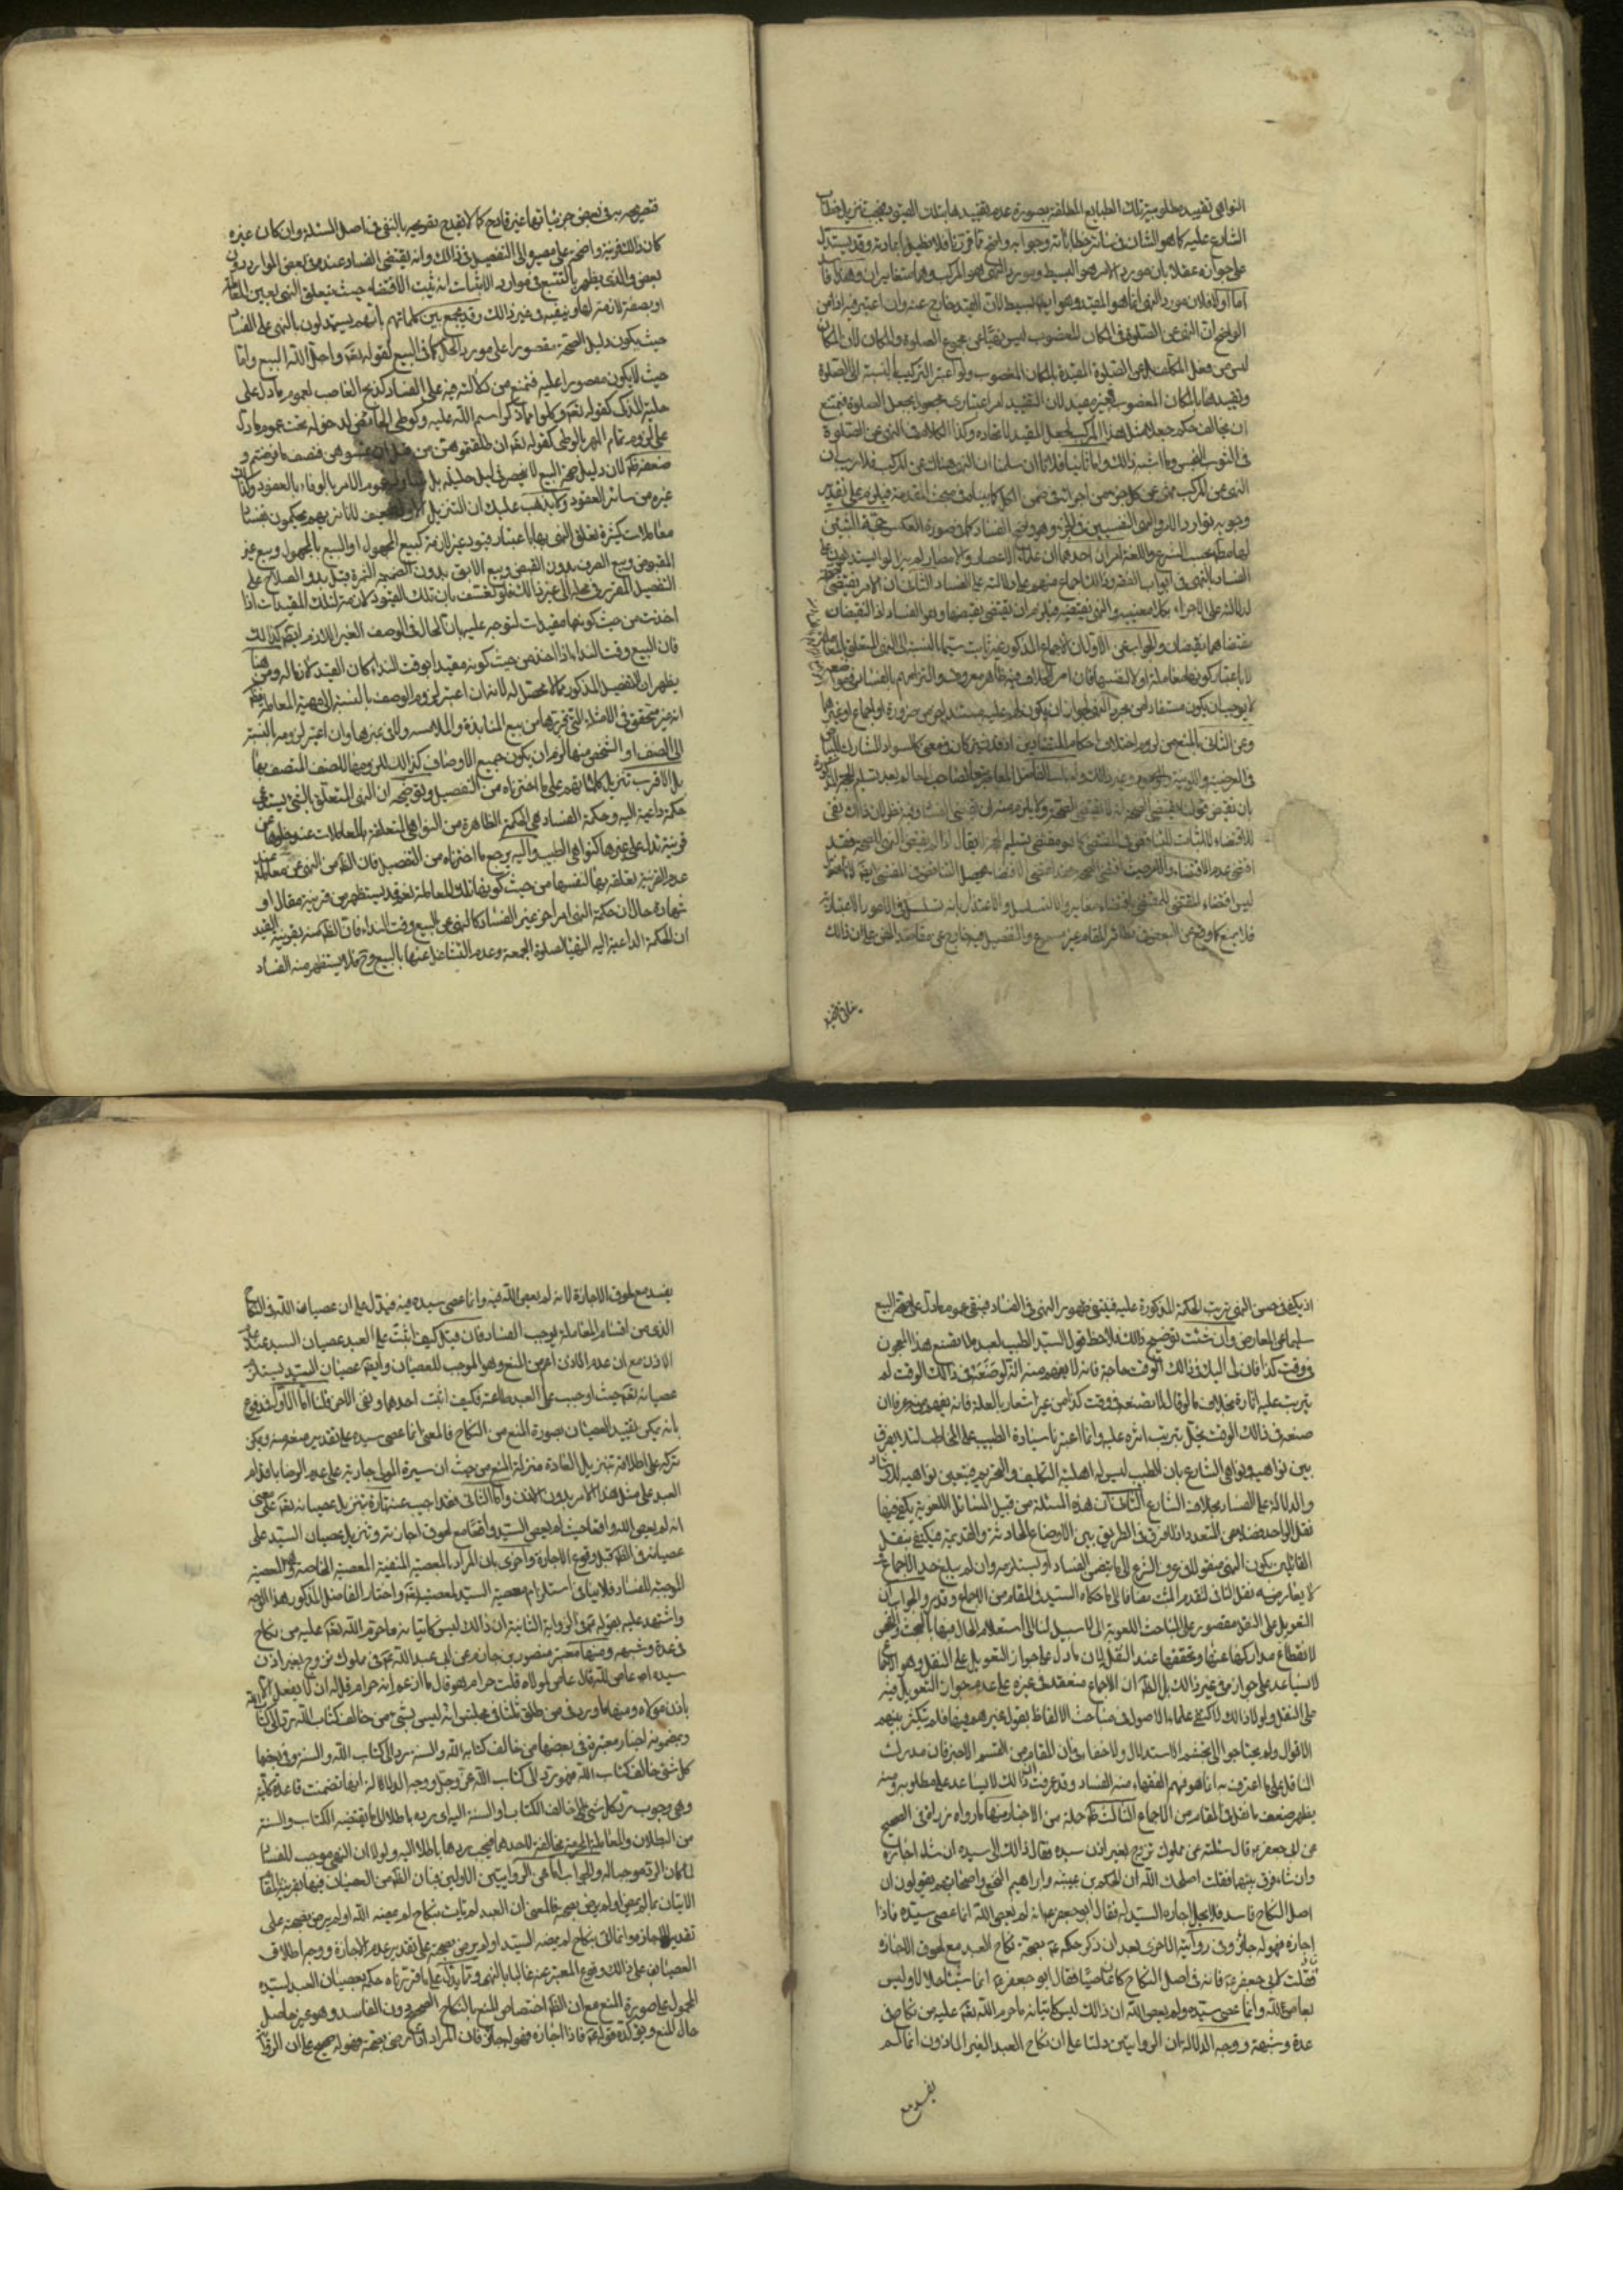 النواهي تقييد مطلوبية تلك الطبايع المطلقة بصورة عدم تقييدها بتلك القيود فيجب تنزيل خطاب
الشارع عليه كما هو الشان في سائر خطاباته وجوابه واضح مما قررنا فلا نطيل باعادته وقد يستدل
على جوازه عقلا بان مورد الامر هو البسيط ومورد النهي هو المركب وهما متغايران وهذا فاسد
اما اولا فلان مورد النهي انما هو المقيد وهو ايضا بسيط لان القيد خارج عنه وان اعتبر فيه اذ من
الواضح ان النهي عن الصلوة في المكان المغصوب ليس نهيا عن مجموع الصلوة والمكان لان المكان
ليس من فعل المكلف بل عن الصلوة المقيدة بالمكان المغصوب ولو اعتبر التركيب بالنسبة الى الصلوة
وتقييدها بالمكان المغصوب فغير مفيد لان التقييد امر اعتباري مجعول بجعل الصلوة فيمتنع
ان يخالف حكمه جعلا مثل هذا المركب لجعل المقيد لاتحاده وكذا الكلام في النهي عن الصلوة
في الثوب النجس وما اشبه ذلك واما ثانيا فلانا ان سلمنا ان النهي هناك عن المركب فلا ريب ان
النهي عن المركب نهي عن كل جزء من اجزائه في ضمن الكل كما بيناه في مبحث المقدمة فيلزم على تقدير
وجوبه توارد الامر والنهي النفسيين في الجزء وهو يقتضي الفساد كما في صورة العكس حجة المثبتين
لهما مطلقا بحسب الشرع واللغة امران احدهما ان علماء الاعصار والامصار لم يزالوا يستدلون على
الفساد بالنهي في ابواب الفقه وذلك اجماع منهم على دلالته على الفساد الثاني ان الامر يقتضي الصحة
لدلالته على الاجزاء بكلا معنييه والنهي نقيضه فيلزم ان يقتضي نقيضها وهو الفساد اذ النقيضان
مقتضاهما نقيضان والجواب عن الاول ان الاجماع المذكور غير ثابت سيما بالنسبة الى النهي المتعلق بالمعاملة
لا باعتبار كونها معاملة او لا لنفسها فان امر الخلاف فيه ظاهر معروف والتزامهم بالفساد في مواضع
لا يوجب ان يكون مستفادا من مجرد النهي لجواز ان يكون لهم عليه مستند اخر من ضرورة او اجماع او غيرهما
وعن الثاني بالمنع من لزوم اختلاف احكام المتضادين اذ قد يشتركان في معنى كالسواد المشارك للبياض
في العرضية واللونية والوجود وغير ذلك
بان نقيض قولنا يقتضي الصحة انه لا يقتضي الصحة ولا يلزم منه ان يقتضي الفساد وفيه نظر لان ذلك نفي
فلا يسمع كما وقع عن البعض في نظائر المقام غير مسموع والتفصيل فيه خارج عن مقاصد الفن على ان ذلك
فتصريحه به في بعض جزئياتها غير قادح كما لا يقدح تصريحه بالنفي في اصل المسئلة وان كان غيره
كان ذلك قرينة واضحة على مصيره الى التفصيل في ذلك وانه يقتضي الفساد عنده في بعض الموارد دون
بعض والذي يظهر بالتتبع في موارد الاثبات انه يثبت الاقتضاء حيث يتعلق النهي بعين المعاملة
او بصفة لازمة لها وينفيه في غير ذلك وقد يجمع بين كلماتهم بانهم يستدلون بالنهي على الفساد
حيث يكون دليل الصحة مقصورا على مورد الحل كما في البيع لقوله تعالى واحل الله البيع واما
حيث لا يكون مقصورا عليه فتمنع من دلالته فيه على الفساد كذبح الغاصب لعموم ما دل على
حلية المذكى كقوله تعالى وكلوا مما ذكر اسم الله عليه وكوطي الحائض لدخوله تحت عموم ما دل
على لزوم تمام المهر بالوطي كقوله تعالى وان طلقتموهن من قبل ان تمسوهن فنصف ما فرضتم و
ضعفه ظاهر لان دليل صحة البيع لا ينحصر في دليل حليته بل يتناوله عموم الامر بالوفاء بالعقود وكذا
غيره من سائر العقود ولا يذهب عليك ان التنزيل الاول ضعيف لانا نريهم يحكمون بفساد
معاملات كثيرة تعلق النهي بها باعتبار قيود غير لازمة كبيع المجهول او البيع بالمجهول وبيع غير
المقبوض وبيع الصرف بدون القبض وبيع الابق بدون الضميمة والثمرة قبل بدو الصلاح على
التفصيل المقرر في محله الى غير ذلك فلو تعسف بان تلك القيود لازمة لتلك المقيدات اذا
اخذت من حيث كونها مقيدات لتوجه عليه بان الحال في الوصف الغير اللازم ايضا كذلك
فان البيع وقت النداء اذا اخذ من حيث كونه مقيدا بوقت النداء كان القيد لازما له ومن هنا
يظهر ان التفصيل المذكور مما لا محصل له لانه ان اعتبر لزوم الوصف بالنسبة الى مهية المعاملة فظاهر
انه غير متحقق في الامثلة التي تحررها من بيع المنابذة والملامسة والى غيرها وان اعتبر لزومه بالنسبة
الى الصنف او الشخص منها لزم ان يكون جميع الاوصاف كذلك للزومها للصنف المتصف بها
بل الاقرب تنزيل كلماتهم على ما اخترناه من التفصيل وتوضيحه ان النهي المتعلق بالشئ يستدعي
حكمة داعية اليه وحكمة الفساد هي الحكمة الظاهرة من النواهي المتعلقة بالمعاملات عند خلوها عن
قرينة تدل على غيرها كنواهي الطبيب واليه يرجع ما اخترناه من التفصيل فان الظاهر من النهي عن معاملة عند
عدم القرينة تعلقه بها لنفسها من حيث كونها تلك المعاملة نعم قد يستظهر من قرينة مقال او
شهادة حال ان حكمة النهي امر اخر غير الفساد كالنهي عن البيع وقت النداء فان الظاهر منه بقرينة القيد
ان الحكمة الداعية اليه التهيأ لصلوة الجمعة وعدم التشاغل عنها بالبيع وح فلا يستظهر منه الفساد
اذ يكفي في حسن النهي ترتب الحكمة المذكورة عليه فينتفي ظهور النهي في الفساد فيبقى عموم ما دل على صحة البيع
سليما عن المعارض وان شئت توضيح ذلك فلاحظ قول السيد الطبيب لعبده لا تصنع هذا المعجون
في وقت كذا فان لي اليك في ذلك الوقت حاجة فانه لا يفهم منه انه لو صنعه في ذلك الوقت لم
يترتب عليه اثاره بخلاف ما لو قال لا تصنعه في وقت كذا من غير اشعار بالعلة فانه يفهم منه عرفا ان
صنعه في ذلك الوقت يخل بترتب اثره عليه وانما اعتبرنا سيادة الطبيب على المخاطب لئلا يفرق
بين نواهيه ونواهي الشارع بان الطبيب ليس له اهلية التكليف والتحريم فيتعين نواهيه للارشاد
والدلالة على الفساد بخلاف الشارع الثاني ان هذه المسئلة من قبيل المسائل اللغوية يكفي فيها
نقل الواحد فضلا عن المتعدد اذ لا فرق في الطريق بين الاوضاع الحادثة والقديمة فيكتفى بنقل
القائلين بكون النهي منقولا في عرف الشرع الى ما يقتضي الفساد او يستلزمه وان لم يبلغ حد الاجماع
لا يعارضه نقل الثاني لتقدم المثبت مضافا الى ما حكاه السيد في المقام من الاجماع وقد مر والجواب ان
التعويل على النقل مقصور على المباحث اللغوية التي لا سبيل لنا الى استعلام الحال فيها بالبحث والفحص
لانقطاع مداركها عنا وتحققها عند النقل لان ما دل على جواز التعويل على النقل وهو الاجماع
لا يساعد على جوازه في غير ذلك بل الظاهر ان الاجماع منعقد في غيره على عدم جواز التعويل فيه
على النقل ولولا ذلك لاكتفى علماء الاصول في مباحث الالفاظ بقول غيرهم فيها فلم يتكثر بينهم
الاقوال ولم يحتاجوا الى تجشم الاستدلال ولا خفاء في ان المقام من القسم الاخير فان مدرك
الناقل على ما اعترف به انما هو فهم الفقهاء منه الفساد وقد عرفت ان ذلك لا يساعد على مطلوبه ومنه
يظهر ضعف ما نقل في المقام من الاجماع الثالث جملة من الاخبار منها ما رواه زرارة في الصحيح
عن ابي جعفر ع قال سئلته عن مملوك تزوج بغير اذن سيده فقال ذلك الى سيده ان شاء اجازه
وان شاء فرق بينهما فقلت اصلحك الله ان الحكم بن عيينه وابراهيم النخعي واصحابهم يقولون ان
اصل النكاح فاسد فلا يحل اجازة السيد له فقال ابو جعفر ع انه لم يعص الله انما عصى سيده فاذا
اجازه فهو له جائز وفي رواية الاخرى بعد ان ذكر حكمه ع بصحة نكاح العبد مع لحوق الاجازة
فقلت لابي جعفر ع فانه في اصل النكاح كان عاصيا فقال ابو جعفر ع انما اتى شيئا حلالا وليس
بعاص لله وانما عصى سيده ولم يعص الله ان ذلك ليس كاتيانه ما حرم الله تعالى عليه من نكاح في
عدة وشبهه ووجه الدلالة ان الروايتين دلتا على ان نكاح العبد الغير المأذون انما لم
يفسد مع
يفسد مع لحوق الاجازة لانه لم يعص الله فيه وانما عصى سيده فيه فيدل على ان عصيان الله في النكاح
الذي من اقسام المعاملة يوجب الفساد فان قيل كيف اثبت على العبد عصيان السيد عند عدم
الاذن مع ان عدم الاذن اعم من المنع وهو الموجب للعصيان وايضا عصيان السيد يستلزم
عصيانه تعالى حيث اوجب على العبد طاعته فكيف اثبت احدهما ونفى الاخر قلنا اما الاول فمدفوع
بانه يمكن تقييد العصيان بصورة المنع من النكاح فالمعنى انما عصى سيده على تقدير منعه منه ويمكن
تركه على اطلاقه بتنزيل العادة منزلة المنع من حيث ان سيرة الموالي جارية على عدم الرضا باقدام
العبد على مثل هذا الامر بدون الاذن واما الثاني فقد اجيب عنه تارة بتنزيل عصيانه تعالى على معنى
انه لم يعص الله واقعا حيث لم يعص السيد واقعا مع لحوق اجازته وتنزيل عصيان السيد على
عصيانه في الظاهر قبل وقوع الاجازة واخرى بان المراد بالمعصية المنفية المعصية الخاصة اي المعصية
الموجبة للفساد فلا ينافي استلزام معصية السيد لمعصيته تعالى واختار الفاضل المذكور هذا الوجه
واستشهد عليه بقوله ع في الرواية الثانية ان ذلك ليس كاتيانه ما حرم الله تعالى عليه من نكاح
في عدة وشبهه ومنها معتبرة منصور بن حازم عن ابي عبد الله ع في مملوك تزوج بغير اذن
سيده اعاص لله قال عاص لمولاه قلت حرام هو قال ما ازعم انه حرام قل له ان لا يفعل الا
باذن مولاه ومنها ما ورد في من طلق ثلثا في مجلس انه ليس بشئ من خالف كتاب الله رد الى كتاب الله
وبمضمونه اخبار معتبرة في بعضها من خالف كتاب الله والسنة رد الى كتاب الله والسنة وفي بعضها
كل شئ خالف كتاب الله فهو يرد الى كتاب الله عز وجل ووجه الدلالة انها تضمنت قاعدة كلية
وهي وجوب رد كل شئ خالف الكتاب او السنة اليه اي رده باطلا الى ما يقتضيه الكتاب والسنة
من البطلان والمعاملة المحرمة مخالفة لاحدهما فيجب ردها باطلا اليه ولولا ان النهي موجب للفساد
لما كان الرد موجبا له والجواب اما عن الروايتين الاوليين فبان الظاهر من العصيان فيهما بقرينة المقام
الاتيان بما لم يمضه او لم يرض بصحته فالمعنى ان العبد لم يات بنكاح لم يمضه الله او لم يرض بصحته على
تقدير الاجازة وانما اتى بنكاح لم يمضه السيد او لم يرض بصحته على تقدير عدم الاجازة ووجه اطلاق
العصيان على ذلك وقوع المعتبر عنه غالبا بالنهي ومما يدل على ما قررناه حكمه بعصيان العبد لسيده
المحمول على صورة المنع مع ان الظاهر اختصاص المنع بالنكاح الصحيح دون الفاسد وهو غير حاصل
حال المنع ويؤكده قوله ع فاذا اجازه فهو له جائز فان المراد اذا رضي بصحته فهو له صحيح على ان الرواية